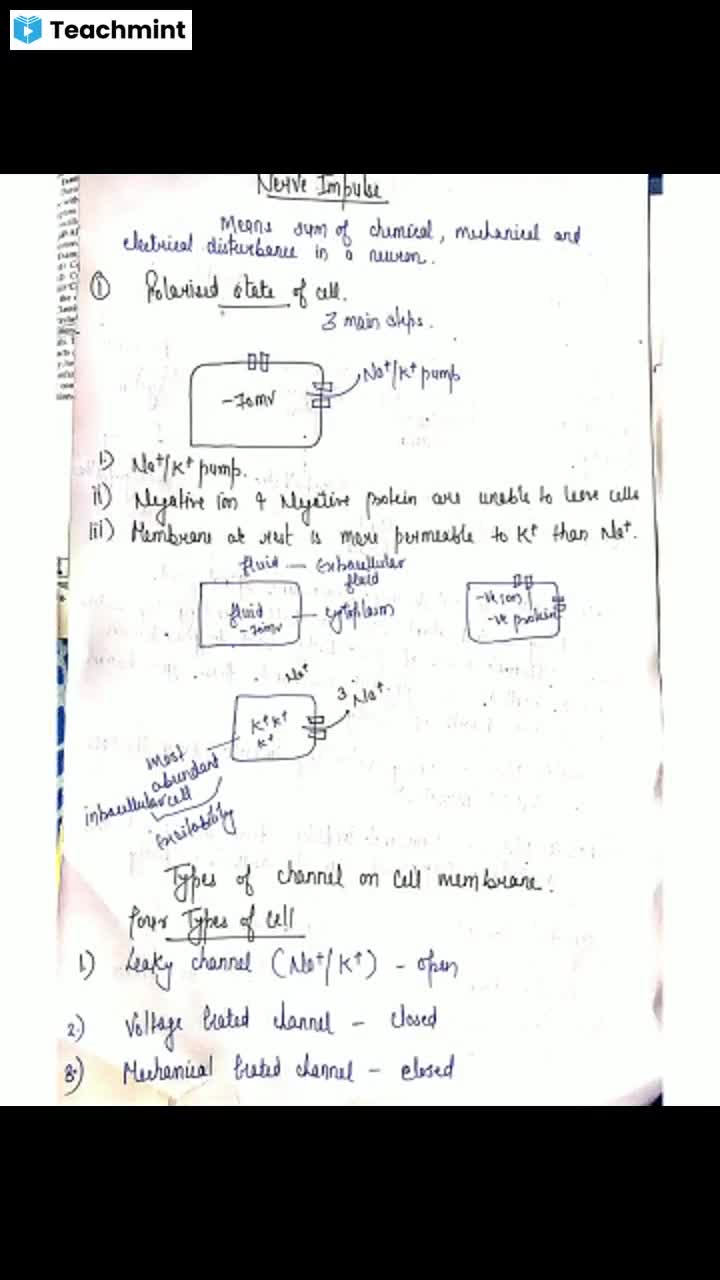 Teachmint
Nerve Impulse
Means sum of chemical, mechanical and
electrical disturbance in a neuron.
① Polarised state of cell.
3 main steps.
-70mv
Na+/K+ pump
i) Na+/K+ pump.
ii) Negative ion & Negative protein are unable to leave cells
iii) Membrane at rest is more permeable to K+ than Na+.
fluid — Extracellular
fluid
fluid — cytoplasm
-70mv
-ve ion
-ve protein
Na+
3 Na+.
K+ K+
K+
Most
abundant
intracellular cell
Excitability
Types of channel on cell membrane.
Four Types of cell
1) Leaky channel (Na+/K+) - open
2.) Voltage Gated channel - closed
3.) Mechanical Gated channel - closed